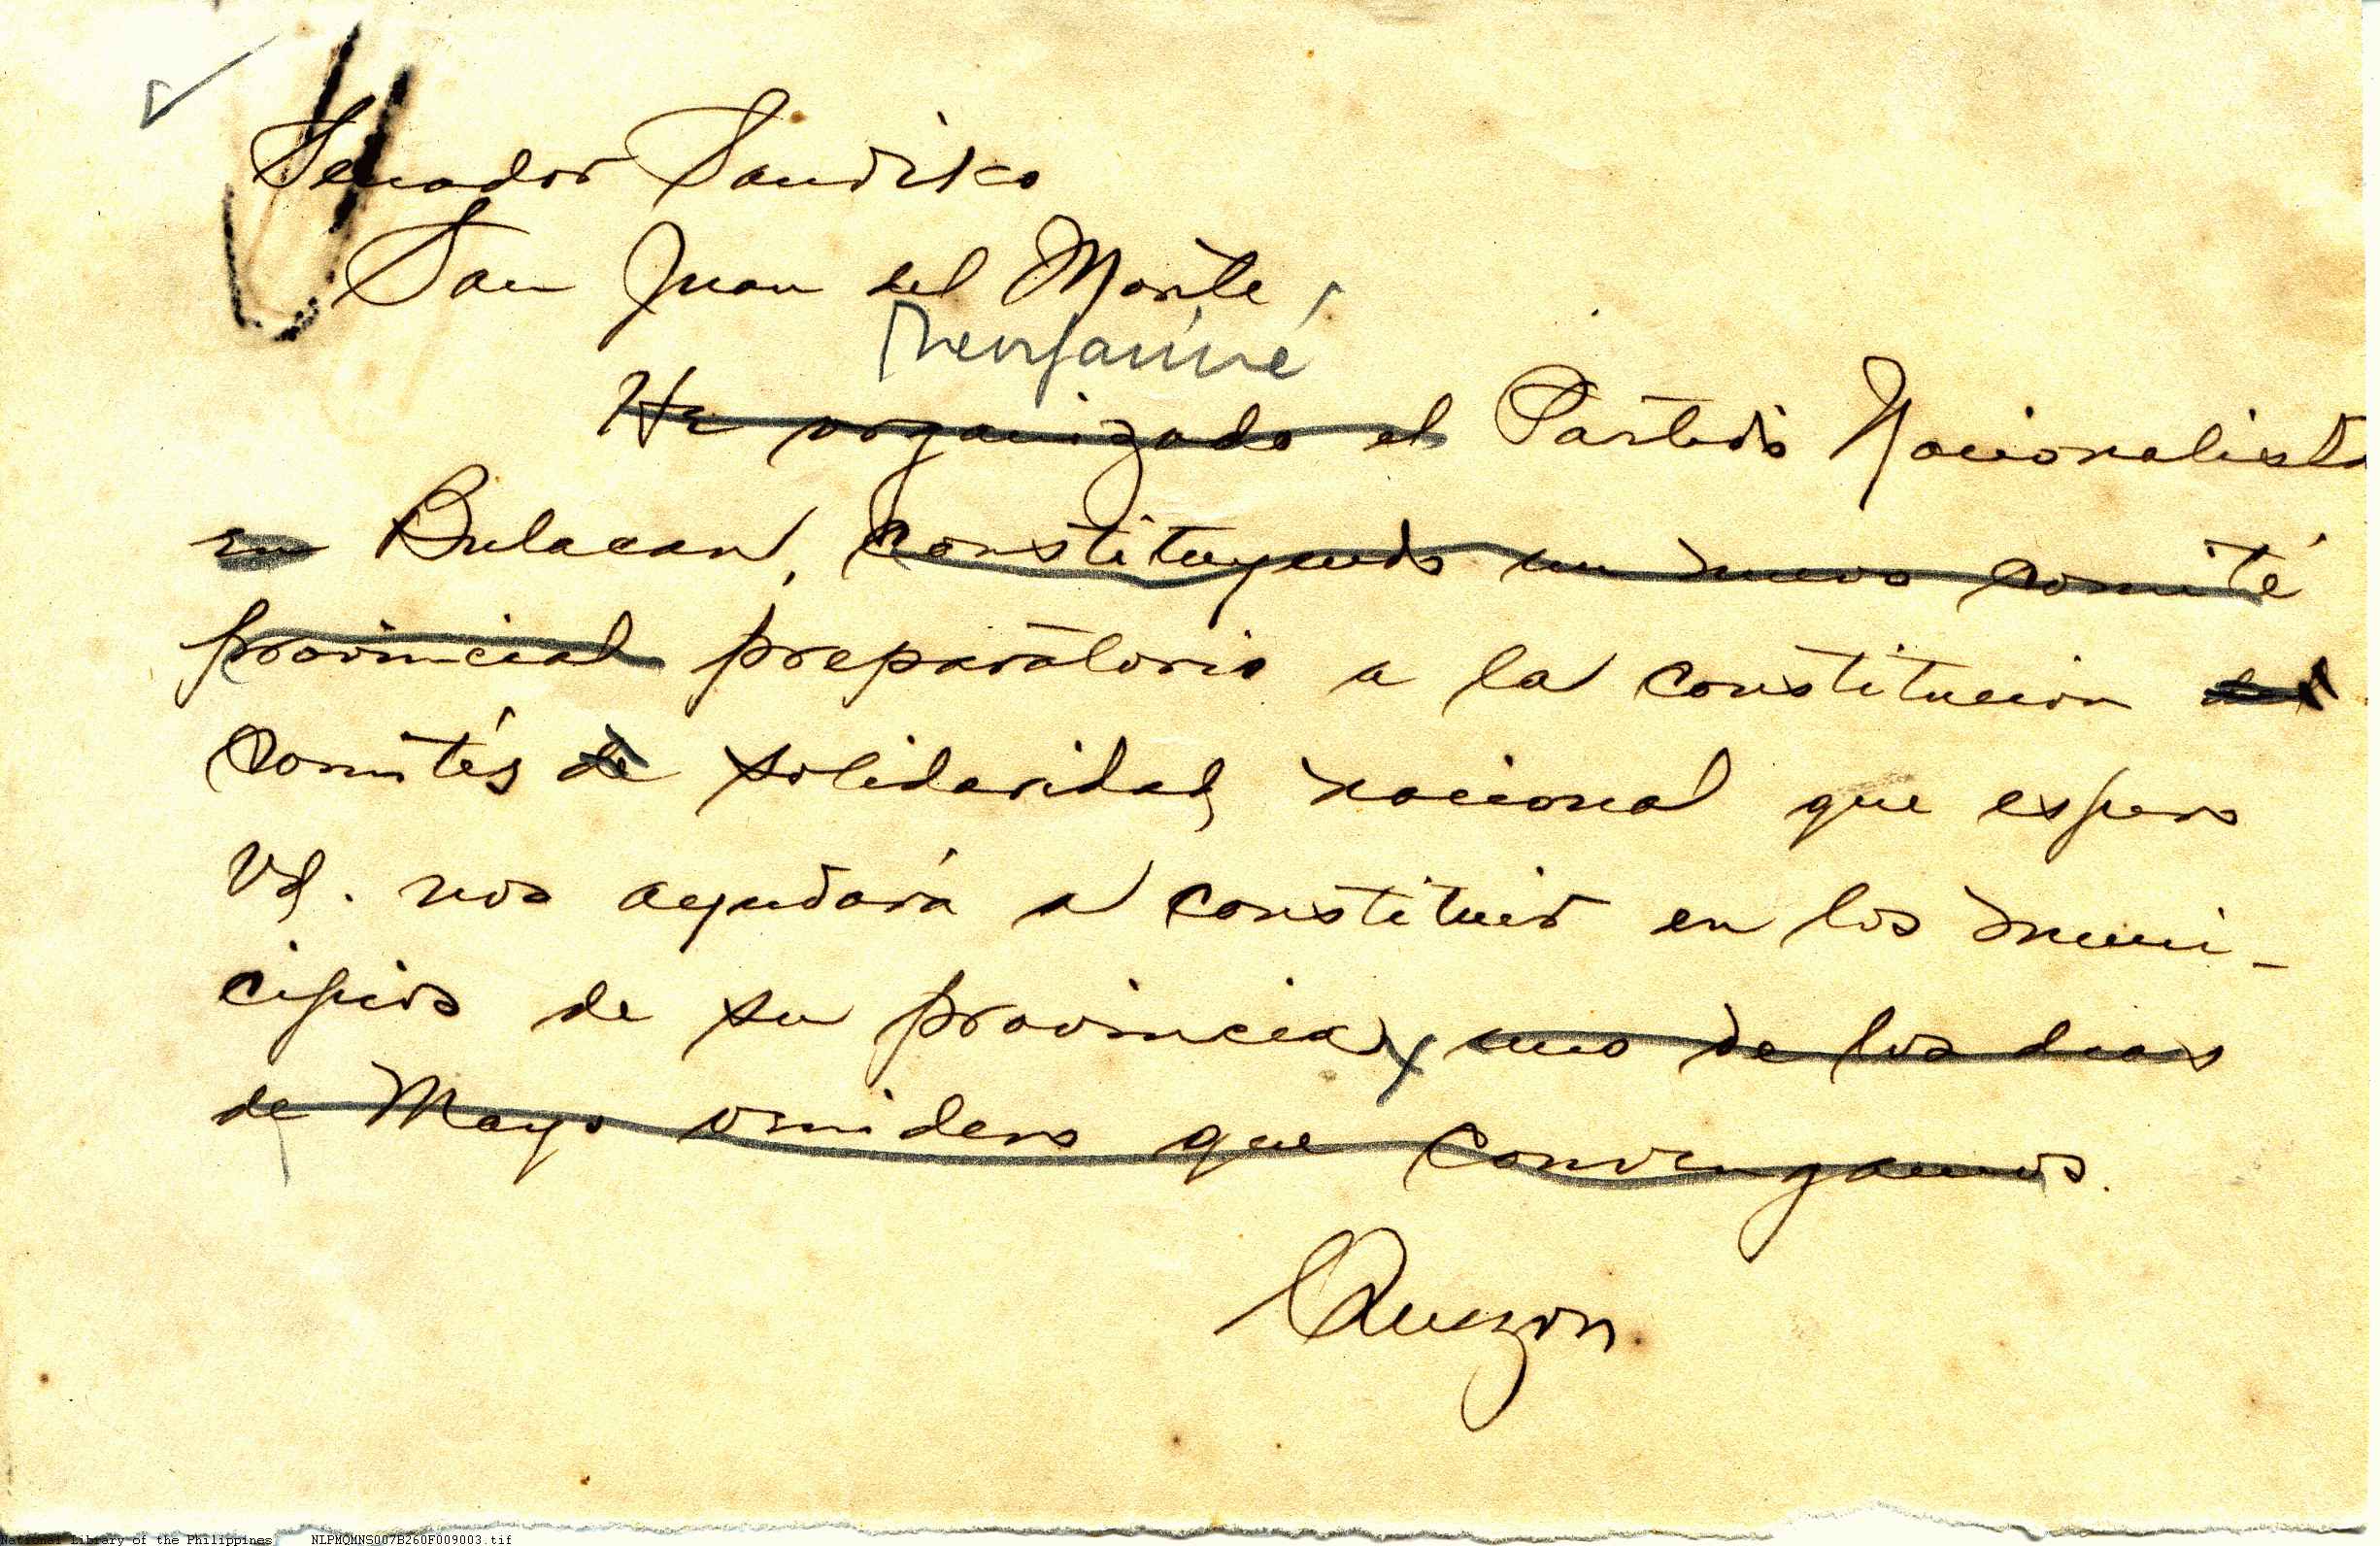 Senador Sandiko
San Juan del Monte
Reorganicé
He organizado el Partido Nacionalista
en Bulacan, constituyendo un nuevo comité
provincial preparatorio a la constitucion de
comités de solidaridad nacional que espero
Vd. nos ayudará a constituir en los muni-
cipios de su provincia, uno de los dias
de Mayo venidero que convengamos.
Quezon
National Library of the Philippines NLPMQMNS007B260F009003.tif